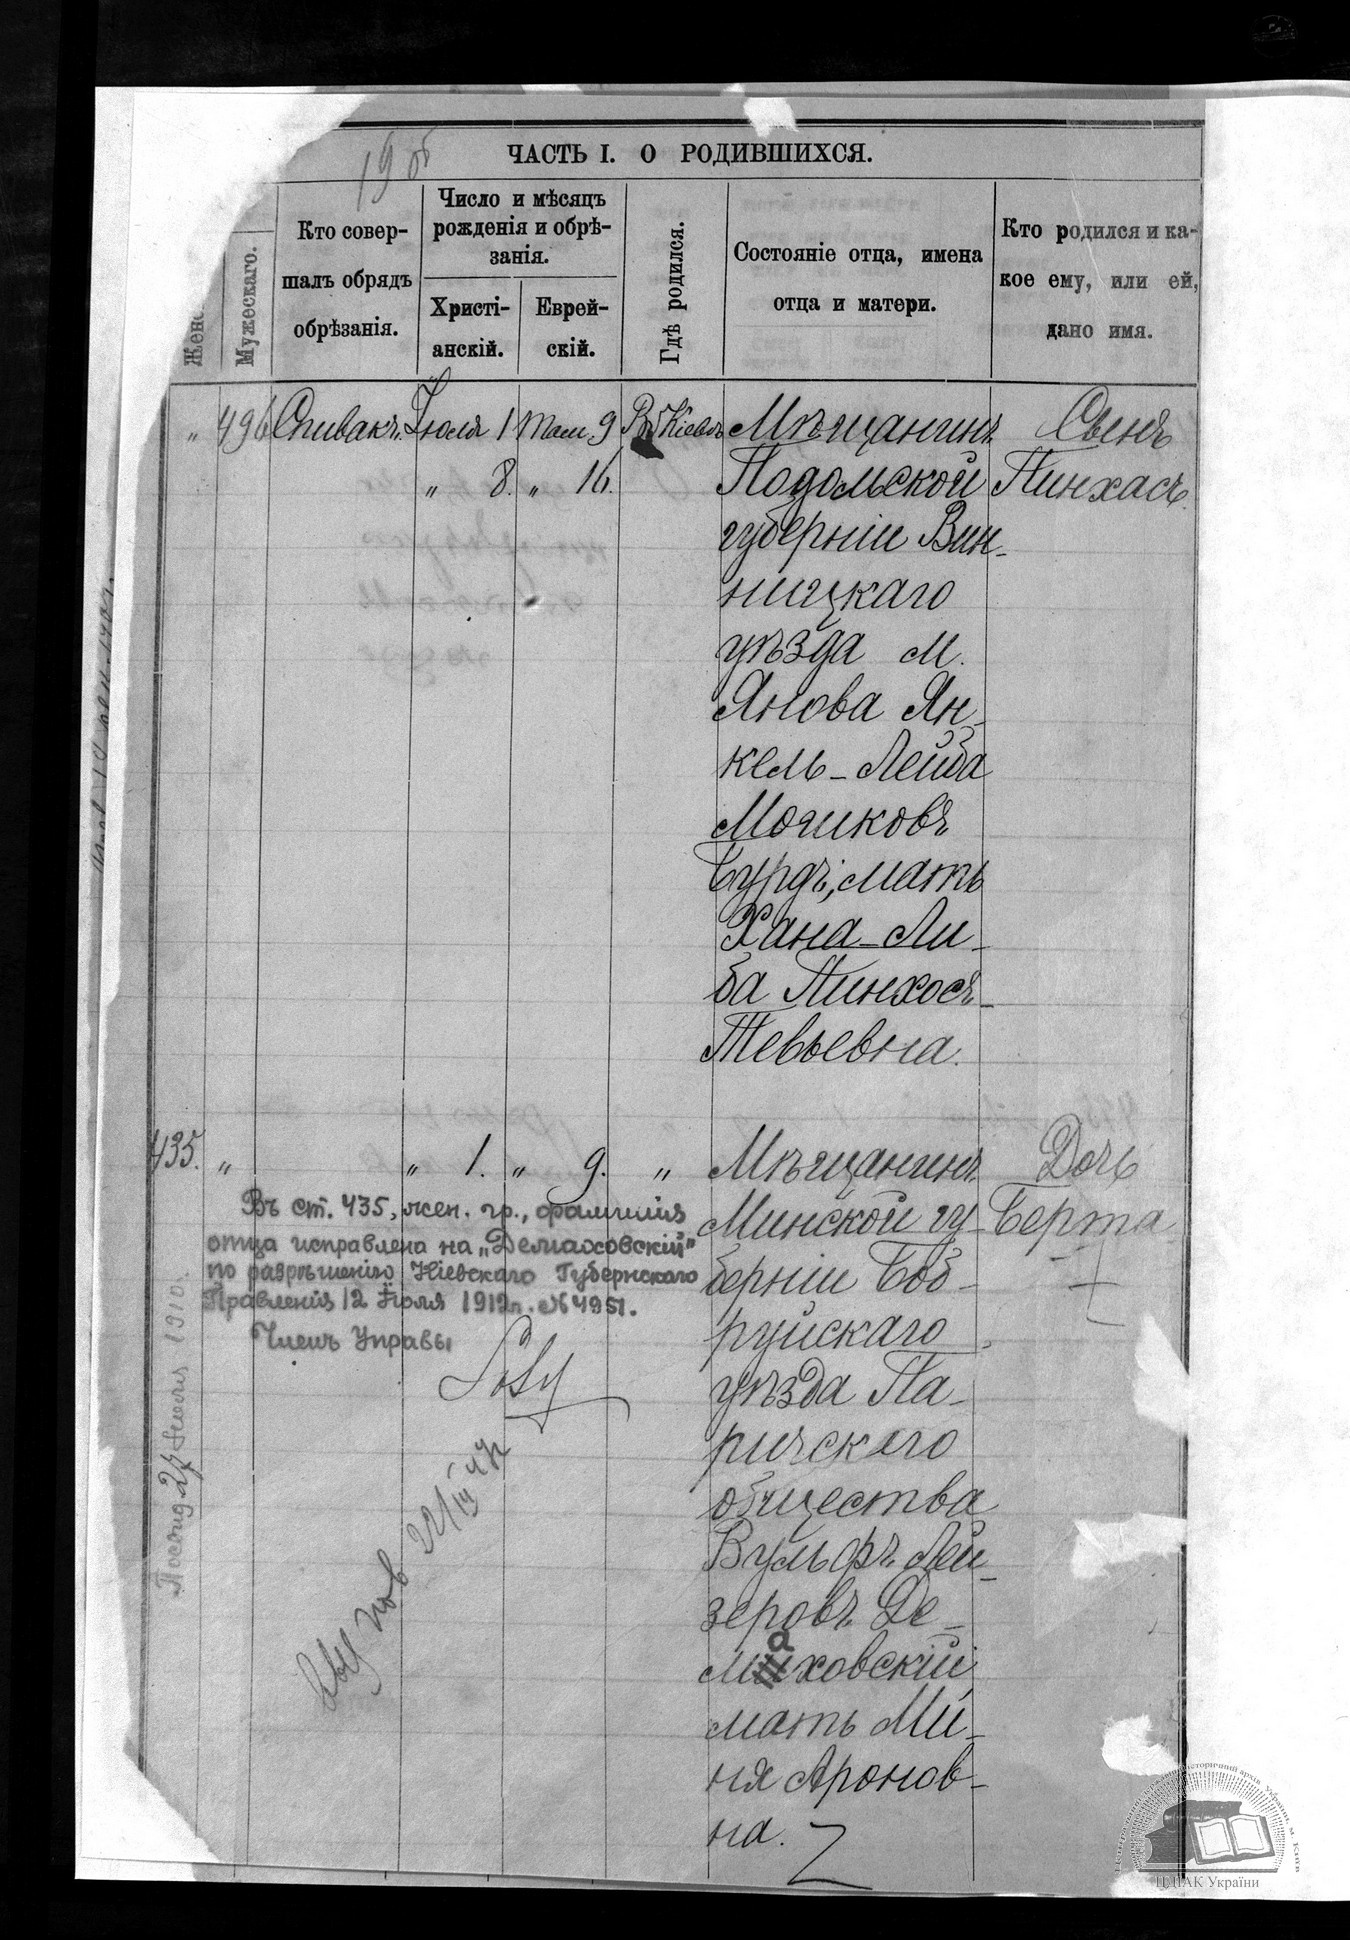 ЧАСТЬ I. О РОДИВШИХСЯ.
Женс
Мужескаго.
Кто совер-
шалъ обрядъ
обрѣзанія.
Число и мѣсяцъ
рожденія и обрѣ-
занія.
Христі-
анскій.
Еврей-
скій.
Гдѣ родился.
Состояніе отца, имена
отца и матери.
Кто родился и ка-
кое ему, или ей,
дано имя.
" 496 Спивакъ. Іюля 1 Там. 9 Въ Кіевѣ Мѣщанинъ Сынъ
" 8. " 16. Подольской Пинхасъ.
губерніи Вин-
ницкаго
уѣзда м.
Янова Ян-
кель-Лейба
Мошковъ
Бурдъ, мать
Хана-Ли-
ба Пинхосъ-
Тевьевна.
435. " " 1. " 9. " Мѣщанинъ Дочь
Минской гу- Берта
берніи Боб-
руйскаго
уѣзда Па-
ричскаго
общества
Вульфъ Лей-
зеровъ Де-
маховскій
мать Ми-
ня Аронов-
на.
Въ ст. 435, жен. гр., фамилія
отца исправлена на „Демаховскій"
по разрѣшенію Кіевскаго Губернскаго
Правленія 12 Іюля 1912 г. № 4951.
Членъ Управы
1910.
ЦДІАК України